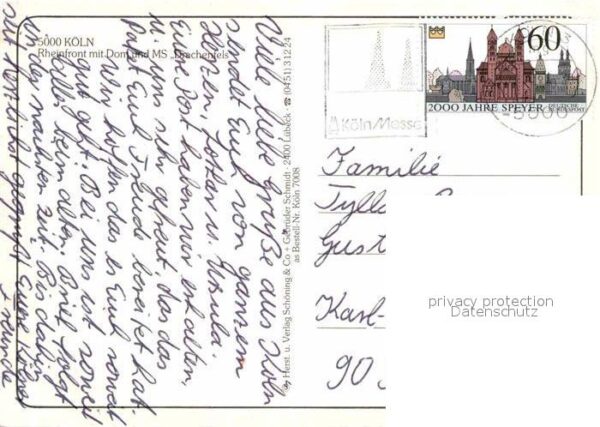 5000 KÖLN
Rheinfront mit Dom und MS „Drachenfels"
Viele liebe Grüße aus Köln
sendet Euch von ganzem
Herzen Lothar u. Ursula.
Eure Post haben wir erhalten
u. uns sehr gefreut das das
Euch Freude bereitet hat.
Wir hoffen das es Euch soweit
gut geht. Bei uns ist soweit
alles beim alten. Brief folgt
in der nächsten Zeit. Bis dahin
seit
Eure
Freunde
Herst. u. Verlag Schöning & Co + Gebrüder Schmidt · 2400 Lübeck · ☎ (0451) 31224
as Bestell-Nr. Köln 7008
KölnMesse
60
2000 JAHRE SPEYER
DEUTSCHE BUNDESPOST
Familie
Tylla
Gust
Karl-
90
privacy protection
Datenschutz